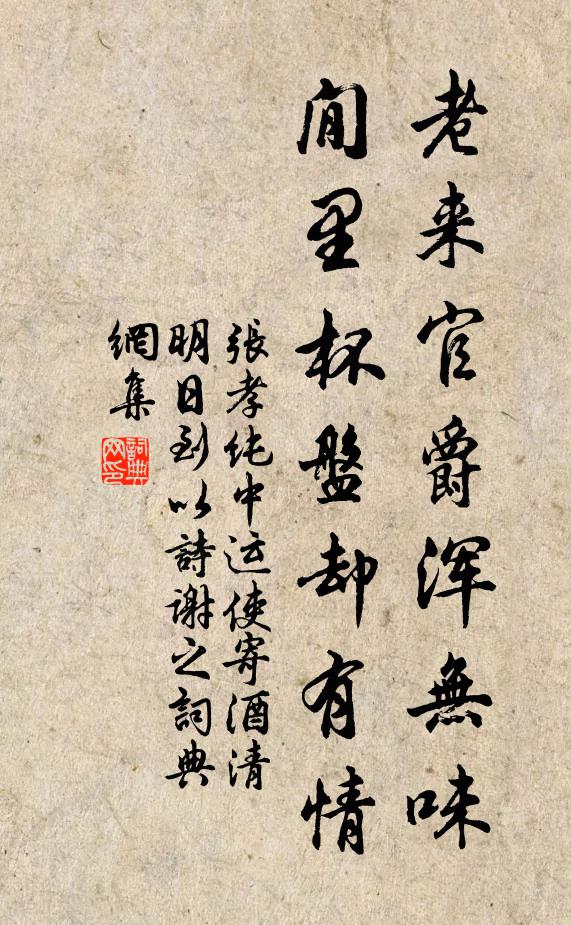 老来官爵浑無味
閒里杯盤却有情
張孝纯中运使寄酒清
明日到以詩谢之詞典
網集
詞典网印